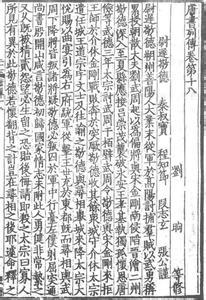 唐書列傳卷第十八
劉昫 等修
尉遲敬德 秦叔寶 程知節 段志玄 張公謹
尉遲敬德朔州善陽人大業末從軍於高陽討捕羣賊以武勇稱
累授朝散大夫劉武周起以為偏將與宋金剛南侵陷晉澮二州
敬德深入至夏縣應接呂崇茂襲破永安王孝基執獨孤懷恩唐
儉等武德三年太宗討武周於柏壁武周令敬德與宋金剛來拒
王師於介休金剛戰敗奔於突厥敬德收其餘眾城守介休太宗
遣任城王道宗宇文士及往諭之敬德與尋相舉城來降太宗大
悅賜以曲宴引為右一府統軍從擊王世充於東都既而尋相與武
周下降將皆叛諸將疑敬德必叛囚於軍中行臺左僕射屈突通
尚書殷開山咸言敬德初歸國家情志未附此人勇健非常縶之
又久既被猜貳怨望必生留之恐貽後悔請即殺之太宗曰寡人
所見有異於此敬德若懷翻背之計豈在尋相之後耶遽命釋之